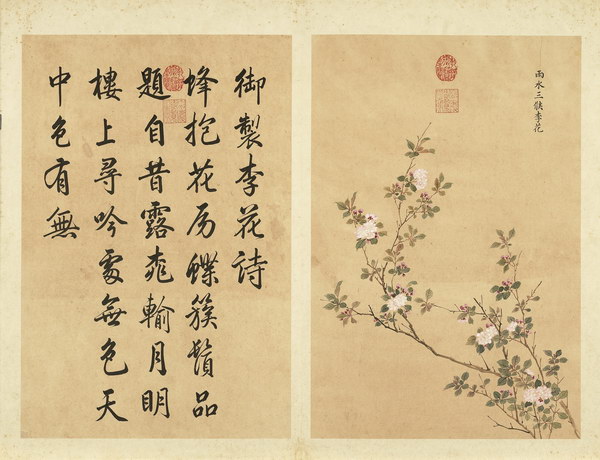 雨水三候李花
御製李花詩
蜂抱花房蝶簇鬚品
題自昔露桃輸月明
樓上尋吟處無色天
中色有無